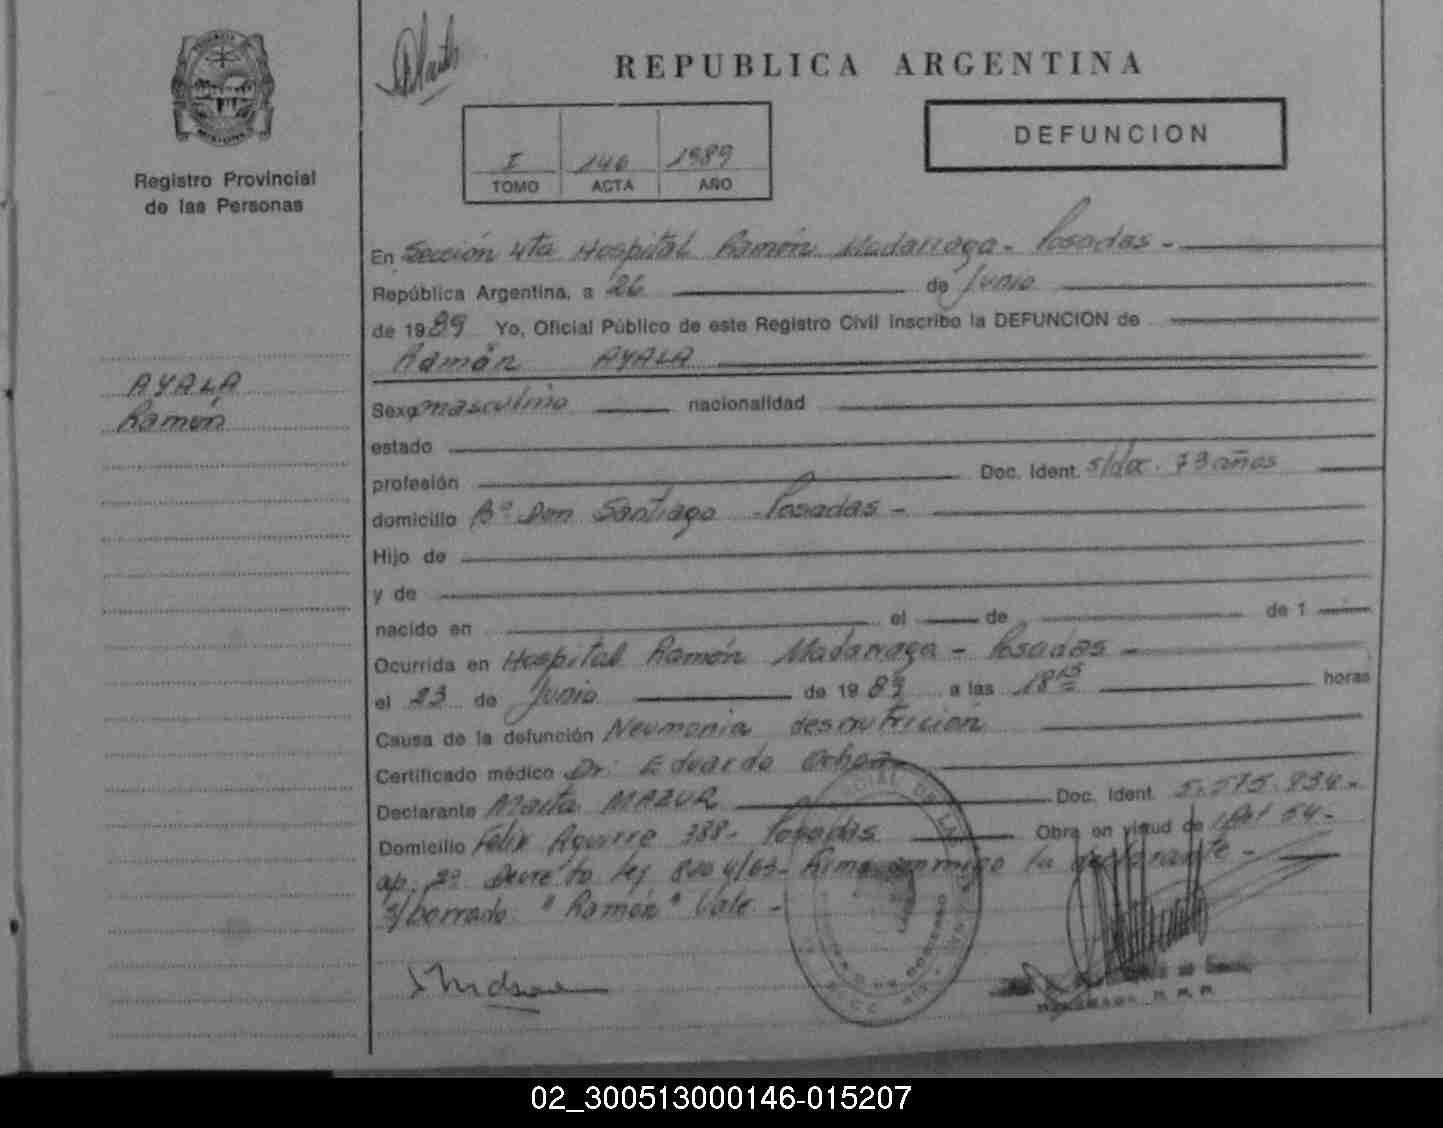 REPUBLICA ARGENTINA
Registro Provincial
de las Personas
I 146 1989
TOMO ACTA AÑO
DEFUNCION
AYALA
Ramón
En Sección 4ta Hospital Ramón Madariaga - Posadas -
República Argentina, a 26 de Junio
de 1989 Yo, Oficial Público de este Registro Civil inscribo la DEFUNCION de
Ramón AYALA
Sexo masculino nacionalidad
estado
profesión Doc. Ident. s/doc. 73 años
domicilio Bº Don Santiago - Posadas -
Hijo de
y de
nacido en el de de 1
Ocurrida en Hospital Ramón Madariaga - Posadas -
el 23 de Junio de 1989 a las 18 15 horas
Causa de la defunción Neumonia desnutrición
Certificado médico Dr. Eduardo Ochoa
Declarante Marta MAZUR Doc. Ident. 5.575.934.-
Domicilio Felix Aguirre 388 - Posadas Obra en virtud de Art 54 -
ap. 2º Decreto ley 8204/63 - Firma conmigo la declarante -
s/borrado "Ramón" Vale -
02_300513000146-015207